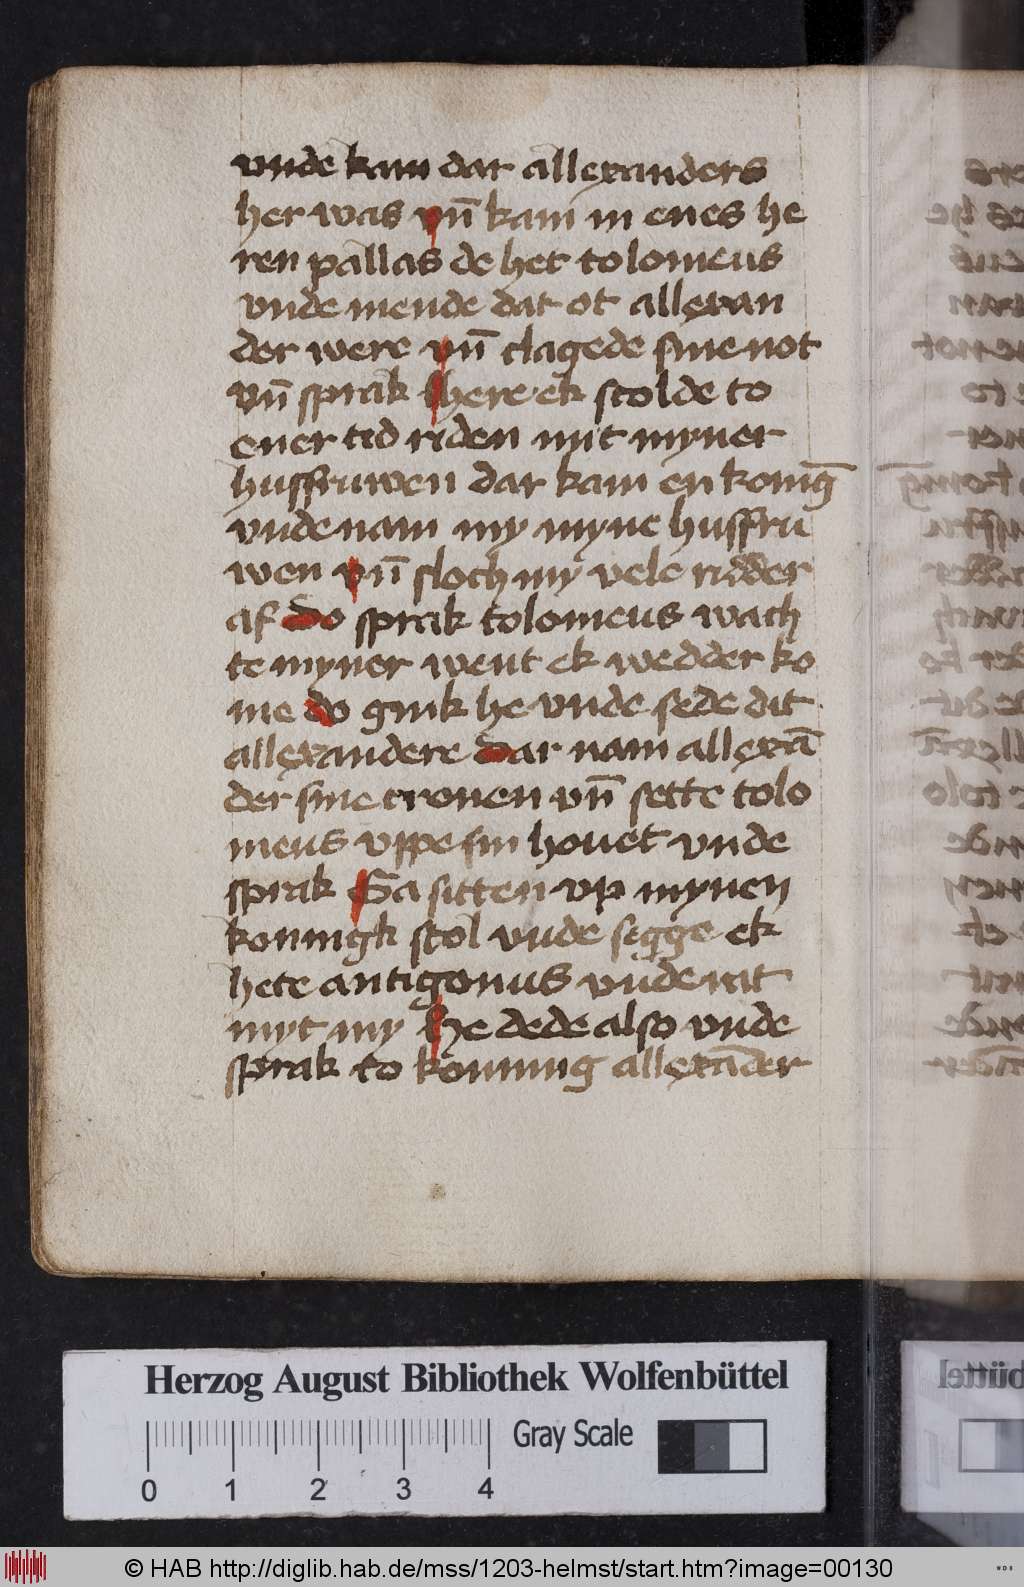 vnde kam dar allexanders
her was vn̄ kam in enes he
ren pallas de het tolomeus
vnde mende dat ot allexan
der were vn̄ clagede sine not
vn̄ sprak here ek scolde to
ener tid riden mit myner
husfruwen dar kam en konīg
vnde nam my myne husfru
wen vn̄ sloch my vele ridder
af do sprak tolomeus wach
te myner went ek wedder ko
me do gink he vnde sede dit
allexandere dar nam allexā
der sine cronen vn̄ sette tolo
meus vppe sin houet vnde
sprak Ga sitten vp mynen
koningk stol vnde segge ek
hete antigonus vnde rit
myt my he dede also vnde
sprak to konning allexāder
Herzog August Bibliothek Wolfenbüttel
Gray Scale
0 1 2 3 4
© HAB http://diglib.hab.de/mss/1203-helmst/start.htm?image=00130